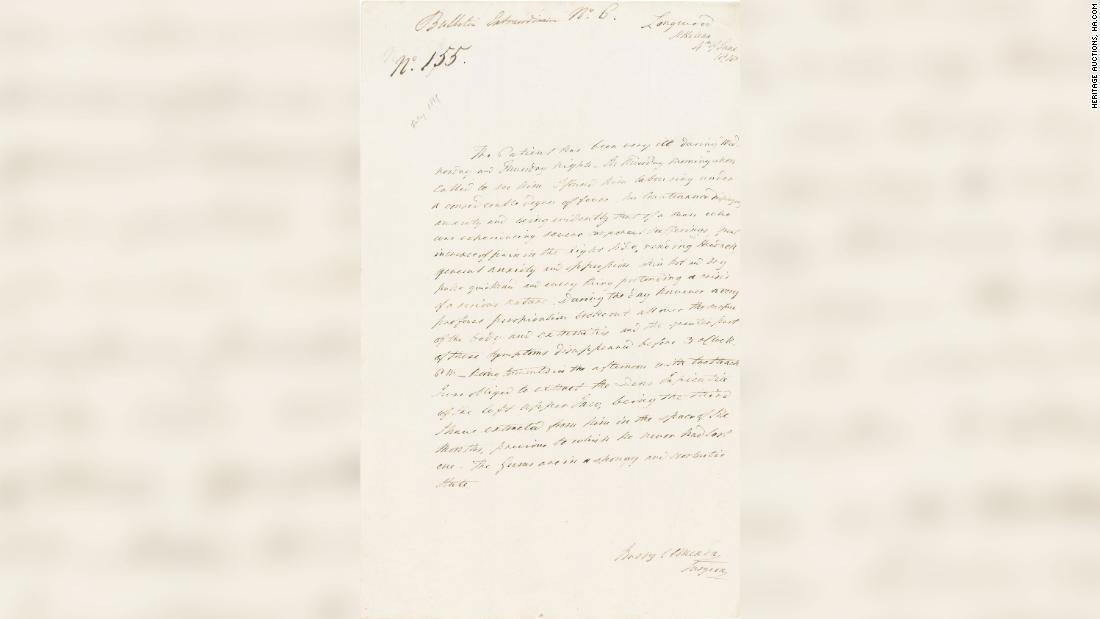 Bulletin Extraordinaire No. 6.
Longwood
St Helena
4th of June
No. 155.
July
The Patient has been very ill during Wed-
nesday and Thursday Nights. On Thursday morning when
called to see him I found him labouring under
a considerable degree of fever. his Countenance displaying
anxiety and being evidently that of a man who
was experiencing severe corporeal sufferings, great
increase of pain in the right side, racking headach
general anxiety and oppression skin hot and dry
pulse quickened and every thing portending a crisis
of a serious nature. During the day however a very
profuse perspiration broke out all over the surface
of the body and extremities and the greater part
of these symptoms disappeared before 3 o'Clock
P.M. being tormented in the afternoon with toothach
I was obliged to extract the dens Sapientia
of the left upper Jaw, being the third
I have extracted from him in the space of Six
Months, previous to which he never had lost
one. The Gums are in a spongy and scorbutic
State
Barry O'Meara
Surgeon
HERITAGE AUCTIONS, HA.COM